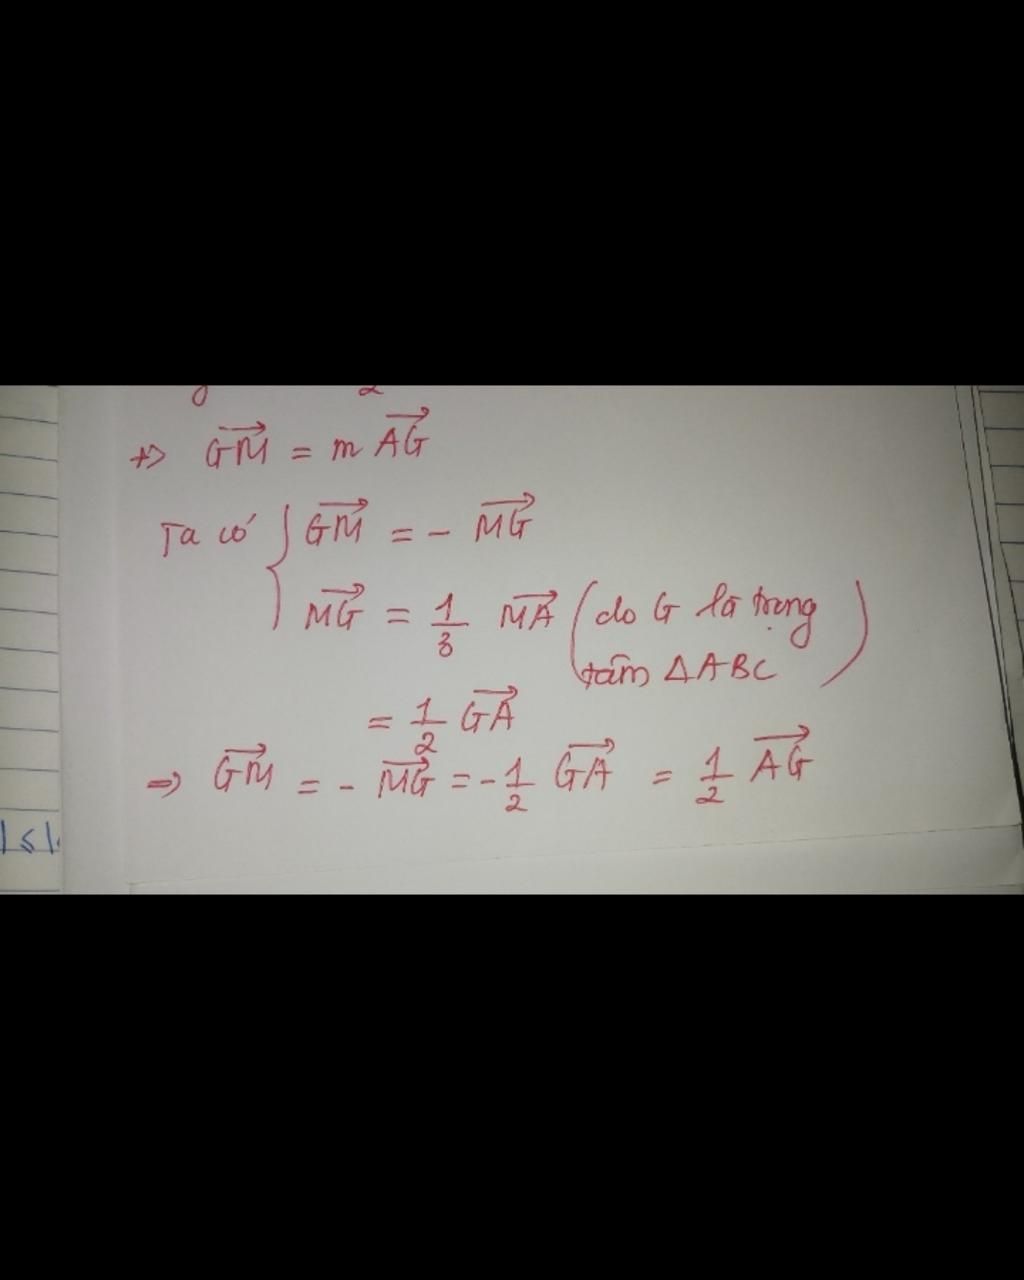 +> GM→ = m AG→
Ta có { GM→ = - MG→
MG→ = 1/3 MA→ (do G là trọng
tâm ΔABC)
= 1/2 GA→
=> GM→ = - MG→ = - 1/2 GA→ = 1/2 AG→